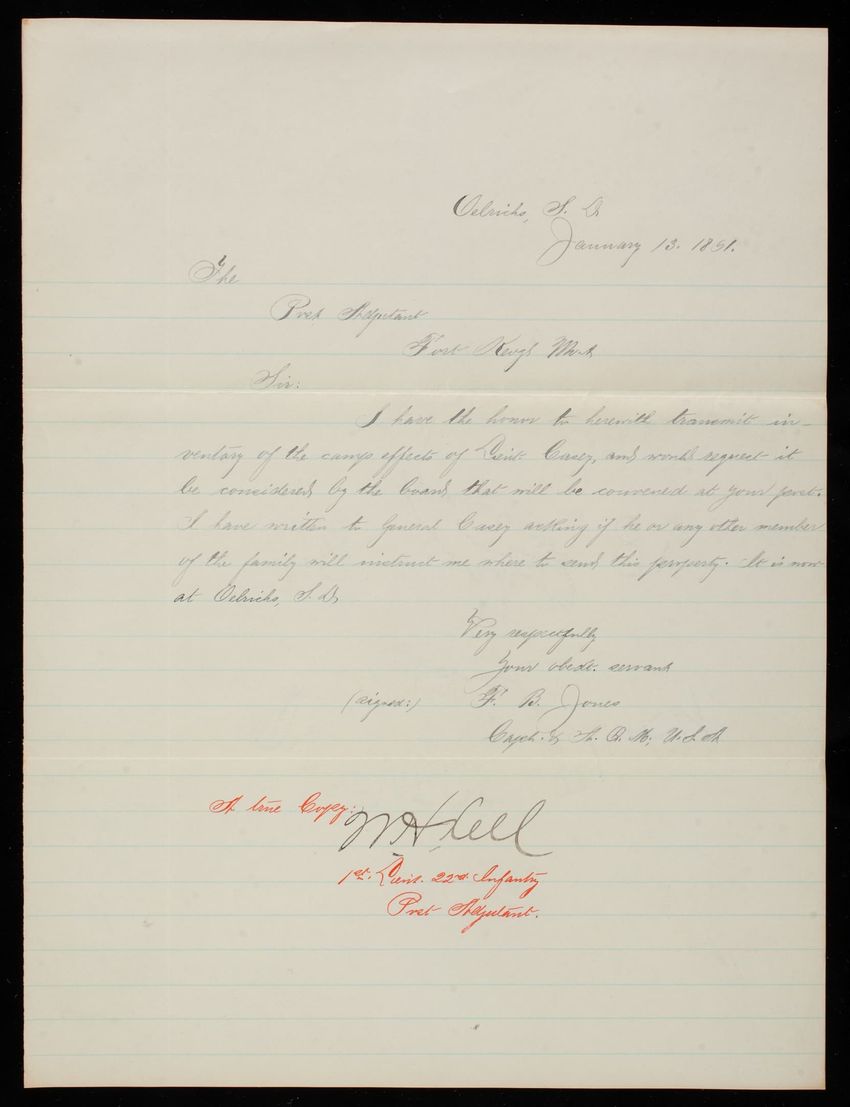 Oelrichs, S. D.
January 13. 1891.
The
Post Adjutant
Fort Keogh Mont.
Sir:
I have the honor to herewith transmit in-
ventory of the camp effects of Lieut. Casey, and would request it
be considered by the board that will be convened at your post.
I have written to General Casey asking if he or any other member
of the family will instruct me where to send this property. It is now
at Oelrichs, S. D.
Very respectfully
Your obedt. servant
(signed:) F. B. Jones
Capt. & A. Q. M; U.S.A
A true Copy:
1st. Lieut. 22d. Infantry
Post Adjutant.